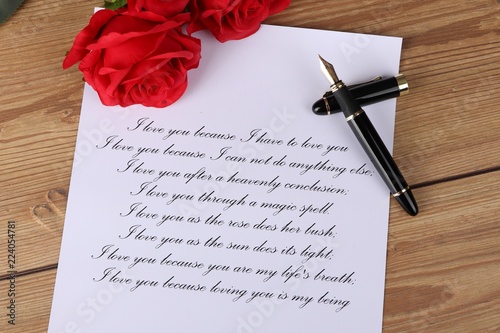 I love you because I have to love you
I love you because I can not do anything else;
I love you after a heavenly conclusion;
I love you through a magic spell.
I love you as the rose does her bush;
I love you as the sun does its light;
I love you because you are my life's breath;
I love you because loving you is my being
224054781